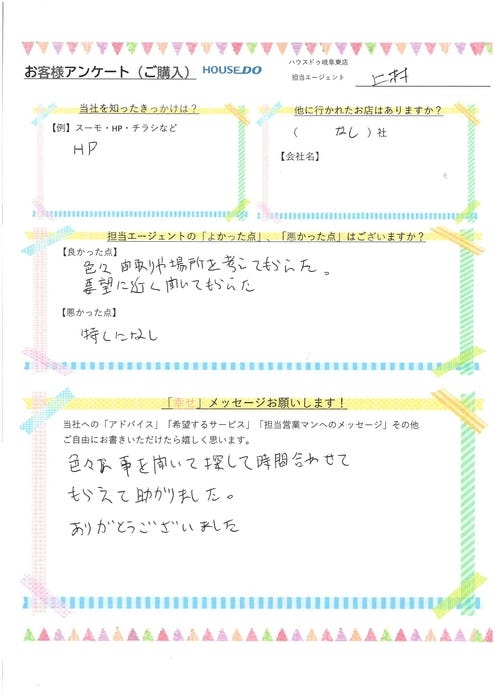 お客様アンケート（ご購入） HOUSE DO
ハウスドゥ岐阜東店
担当エージェント 上村
当社を知ったきっかけは？
【例】スーモ・HP・チラシなど
HP
他に行かれたお店はありますか？
（ なし ）社
【会社名】
担当エージェントの「よかった点」、「悪かった点」はございますか？
【良かった点】
色々間取りや場所を考えてもらった。
要望に近く聞いてもらった
【悪かった点】
特になし
「幸せ」メッセージお願いします！
当社への「アドバイス」「希望するサービス」「担当営業マンへのメッセージ」その他
ご自由にお書きいただけたら嬉しく思います。
色々な事を聞いて探して時間合わせて
もらえて助かりました。
ありがとうございました